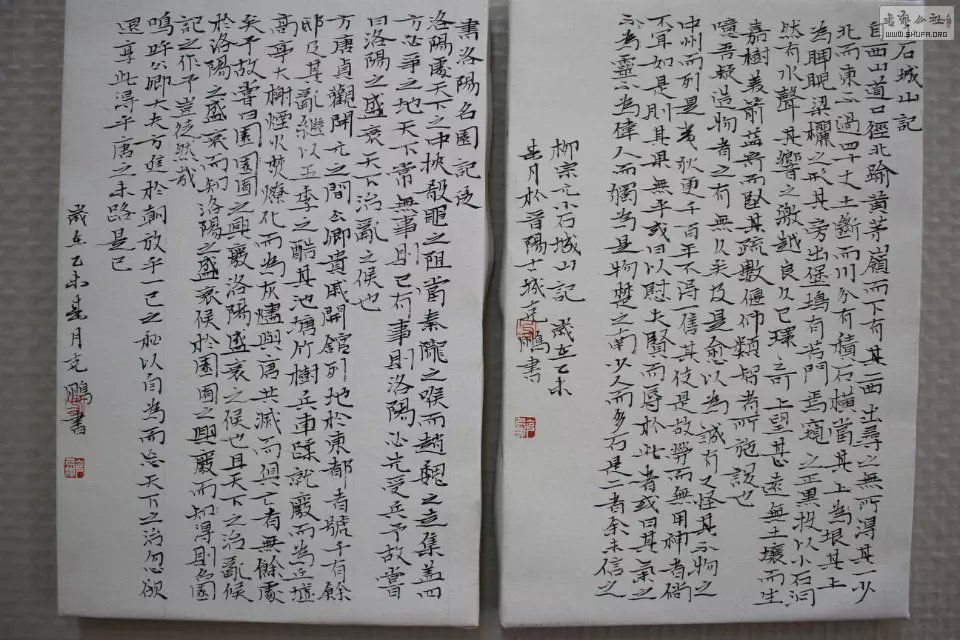 石城山記
自西山道口徑北踰黃茅嶺而下有其二西出尋之無所得其一少
北而東不過四十丈土斷而川分有積石橫當其上為垠其上
為睥睨梁欐之形其旁出堡塢有若門焉窺之正黑投以小石洞
然有水聲其響之激越良久已環之可上望甚遠無土壤而生
嘉樹美箭益奇而堅其疏數偃仰類智者所施設也
噫吾疑造物者之有無久矣及是愈以為誠有又怪其不物之
中州而列是夷狄更千百年不得一售其伎是故勞而無用神者倘
不宜如是則其果無乎或曰以慰夫賢而辱於此者或曰其氣之
不為靈不為偉人而獨為是物楚之南少人而多石是二者余未信之
柳宗元小石城山記 歲在乙未
春月於晉陽士城克鵬書
書洛陽名園記後
洛陽處天下之中挾殽黽之阻當秦隴之喉而趙魏之走集蓋四
方必爭之地天下常無事則已有事則洛陽必先受兵予故嘗
曰洛陽之盛衰天下治亂之候也
方唐貞觀開元之間公卿貴戚開館列地於東都者號千有餘
邸及其亂繼以五季之酷其池塘竹樹兵車蹂就廢而為丘墟
高亭大榭煙火焚燎化而為灰燼與唐共滅而俱亡有無餘處
矣予故嘗曰園園囿之興廢洛陽盛衰之候也且天下之治亂候
於洛陽之盛衰而知洛陽之盛衰候於園囿之興廢而知得則名園
記之作予豈徒然哉
嗚呼公卿大夫方進於朝放乎一己之私以自為而忘天下之治忽欲
退享此得乎唐之末路是已
歲在乙未春月克鵬書
書藝公社
WWW.SHUFA.ORG